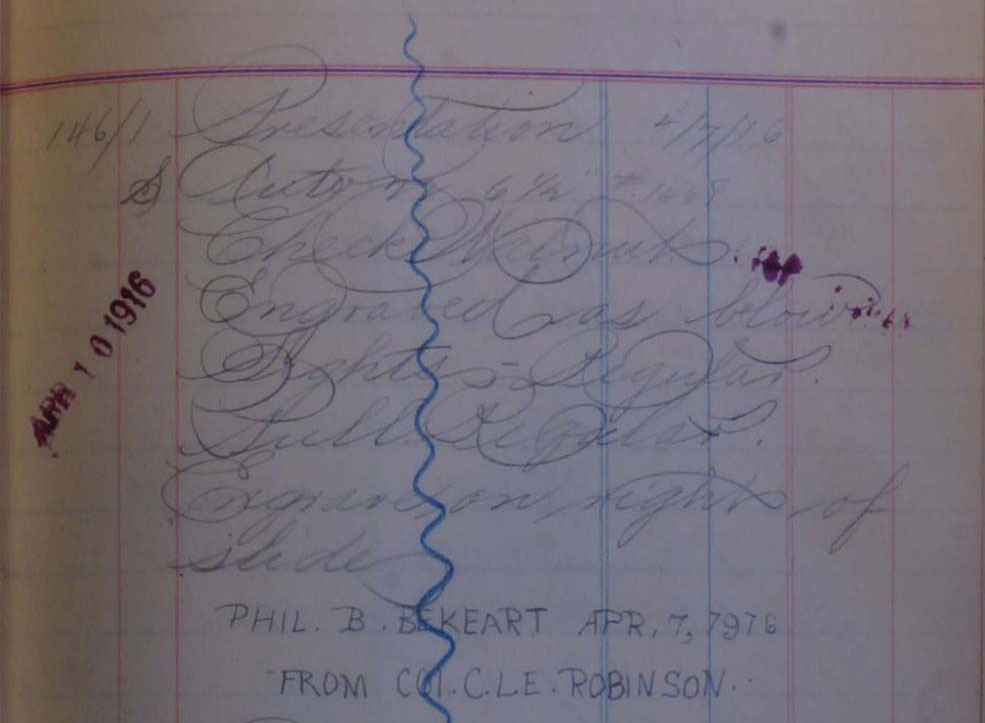 146/1 Presentation 4/7/16
S Auto 6 1/2"
Check Walnut.
Engraved as below
Sights - Regular.
Pull Regular.
Engrave on right of
slide
APR 10 1916
PHIL. B. BEKEART APR. 7, 1916
FROM COL. C.L.E. ROBINSON.